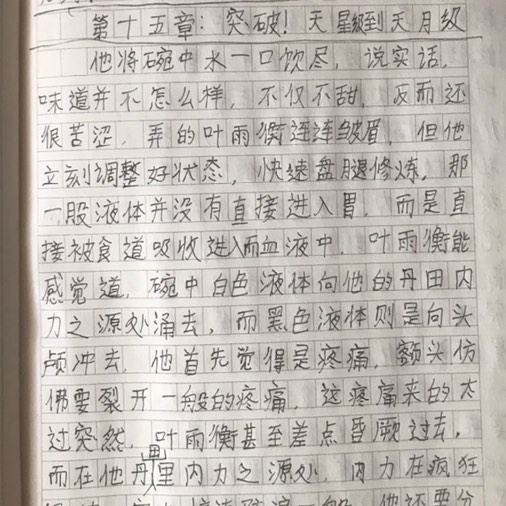 第十五章：突破！天星级到天月级
他将碗中水一口饮尽，说实话，
味道并不怎么样，不仅不甜，反而还
很苦涩，弄的叶雨衡连连皱眉，但他
立刻调整好状态，快速盘腿修炼，那
一股液体并没有直接进入胃，而是直
接被食道吸收进入血液中，叶雨衡能
感觉道，碗中白色液体向他的丹田内
力之源处涌去，而黑色液体则是向头
颅冲去，他首先觉得是疼痛，额头仿
佛要裂开一般的疼痛，这疼痛来的太
过突然，叶雨衡甚至差点昏厥过去，
而在他丹田里内力之源处，内力在疯狂